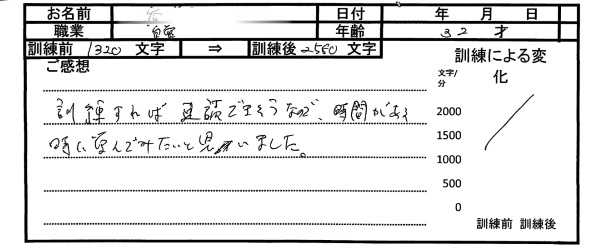 お名前 日付 年 月 日
職業 自営 年齢 32 才
訓練前 1320 文字 ⇒ 訓練後 2560 文字
ご感想
訓練すれば 速読できそうなので、時間がある
時に学んでみたいと思いました。
訓練による変
化
文字/
分
2000
1500
1000
500
0
訓練前 訓練後